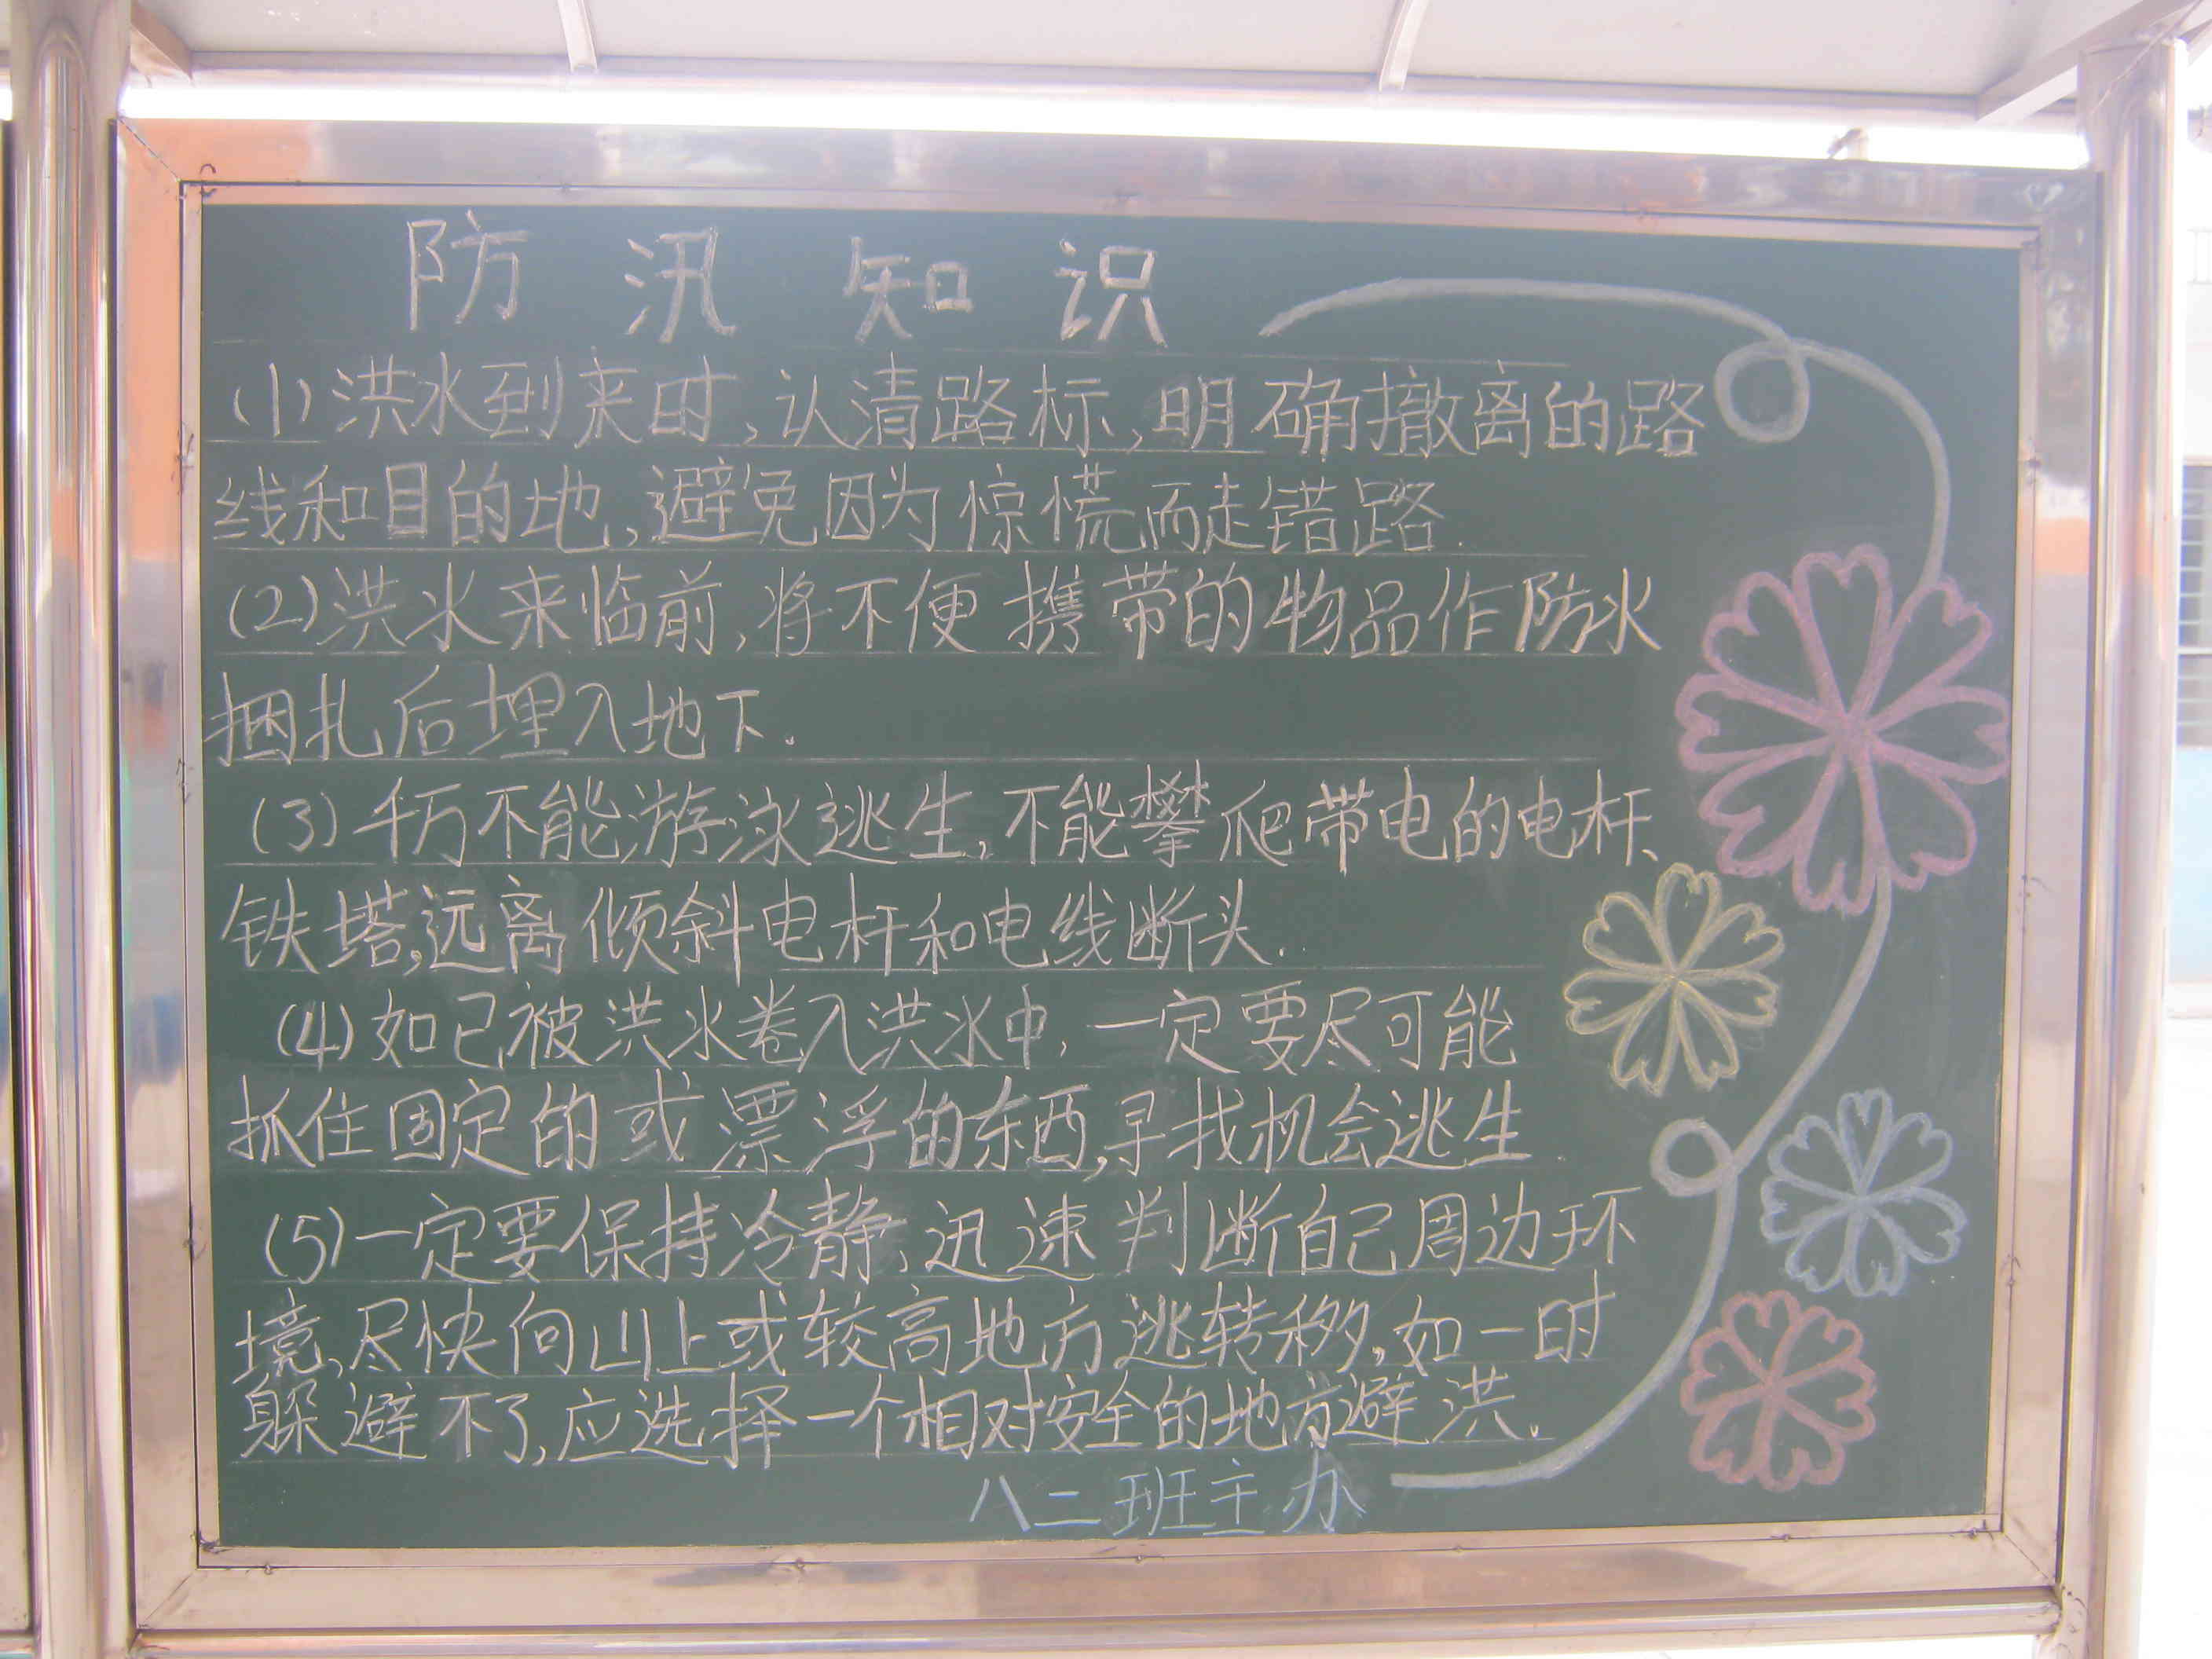 防汛知识
(1)洪水到来时,认清路标,明确撤离的路
线和目的地,避免因为惊慌而走错路.
(2)洪水来临前,将不便携带的物品作防水
捆扎后埋入地下.
(3)千万不能游泳逃生,不能攀爬带电的电杆、
铁塔,远离倾斜电杆和电线断头.
(4)如已被洪水卷入洪水中,一定要尽可能
抓住固定的或漂浮的东西,寻找机会逃生.
(5)一定要保持冷静,迅速判断自己周边环
境,尽快向山上或较高地方逃转移,如一时
躲避不了,应选择一个相对安全的地方避洪.
八二班主办